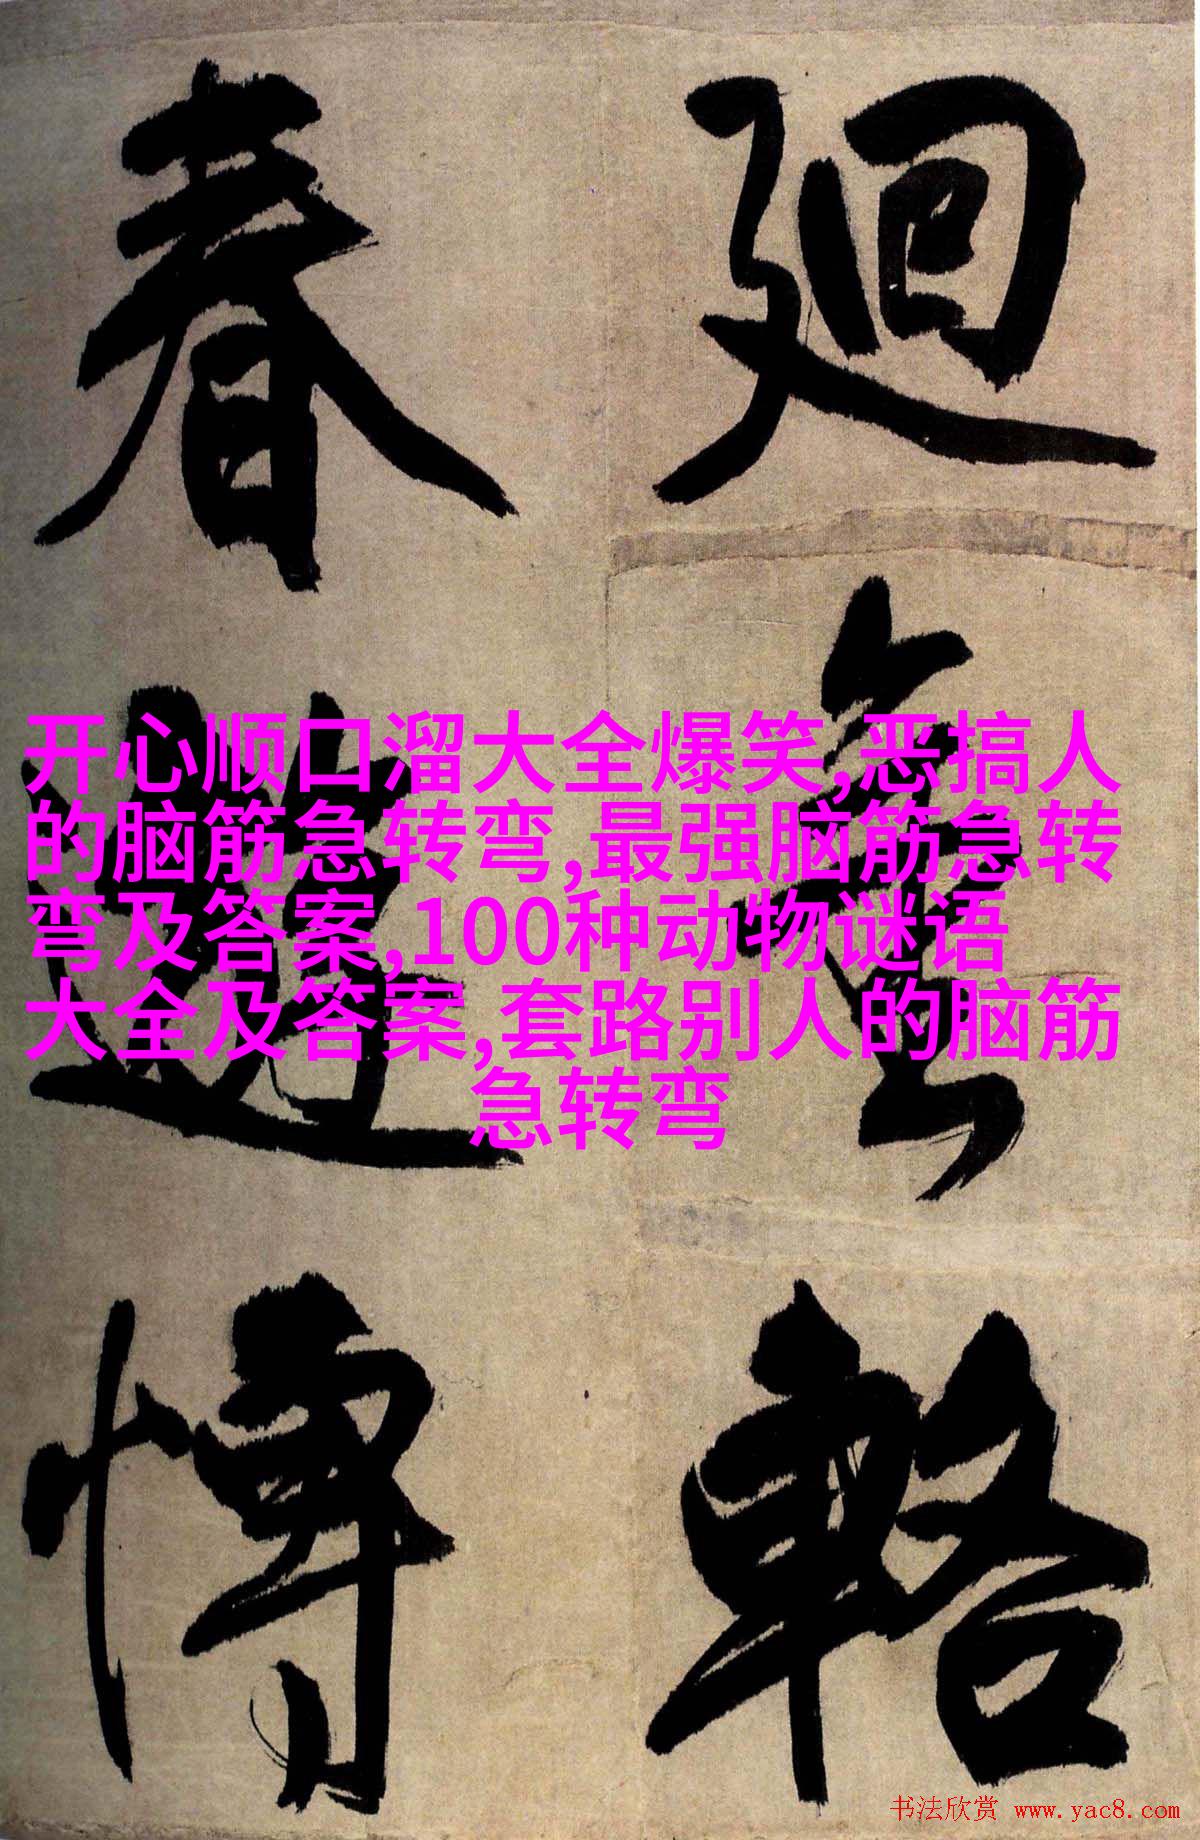 廻輅
春
开心顺口溜大全爆笑,恶搞人
的脑筋急转弯,最强脑筋急转
弯及答案,100种动物谜语
大全及答案,套路别人的脑筋
急转弯
书法欣赏 www.yac8.com